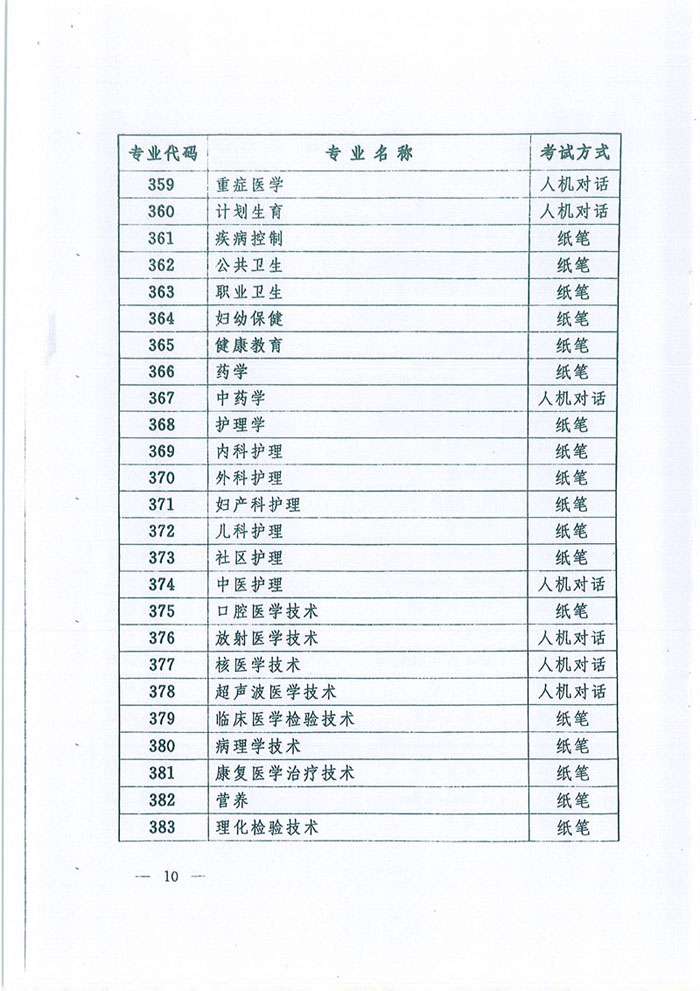 专业代码 专业名称 考试方式
359 重症医学 人机对话
360 计划生育 人机对话
361 疾病控制 纸笔
362 公共卫生 纸笔
363 职业卫生 纸笔
364 妇幼保健 纸笔
365 健康教育 纸笔
366 药学 纸笔
367 中药学 人机对话
368 护理学 纸笔
369 内科护理 纸笔
370 外科护理 纸笔
371 妇产科护理 纸笔
372 儿科护理 纸笔
373 社区护理 纸笔
374 中医护理 人机对话
375 口腔医学技术 纸笔
376 放射医学技术 人机对话
377 核医学技术 人机对话
378 超声波医学技术 人机对话
379 临床医学检验技术 纸笔
380 病理学技术 纸笔
381 康复医学治疗技术 纸笔
382 营养 纸笔
383 理化检验技术 纸笔
— 10 —